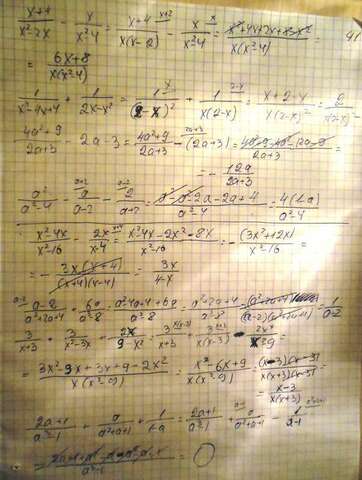 x+4/x²-2x - x/x²-4 = x+4/x(x-2) - x/x²-4 = x²+4x+2x+8-x²/x(x²-4) =
= 6x+8/x(x²-4)
1/x²-4x+4 + 1/2x-x² = 1/(2-x)² + 1/x(2-x) = x+2-x/x(2-x)² = 2/x(2-x)²
4a²+9/2a+3 - 2a-3 = 4a²+9/2a+3 - (2a+3) = 4a²+9-4a²-12a-9/2a+3 =
= - 12a/2a+3
a²/a²-4 - a/a-2 - 2/a+2 = a²-a²-2a-2a+4/a²-4 = 4(1-a)/a²-4
x²-4x/x²-16 - 2x/x-4 = x²-4x-2x²-8x/x²-16 = -(3x²+12x)/x²-16 =
= - 3x(x+4)/(x+4)(x-4) = 3x/4-x
a-2/a²+2a+4 + 6a/a³-8 = a²-4a+4+6a/a³-8 = a²+2a+4/a³-8 = 1/a-2
3/x+3 + 3/x²-3x + 2x/9-x² = 3/x+3 + 3/x(x-3) - 2x/x²-9 =
= 3x²-9x+3x+9-2x²/x(x²-9) = x²-6x+9/x(x²-9) = (x-3)(x-3)/x(x+3)(x-3) =
= x-3/x(x+3)
2a+1/a³-1 + a/a²+a+1 + 1/1-a = 2a+1/a³-1 + a/a²+a+1 - 1/a-1 =
= 0